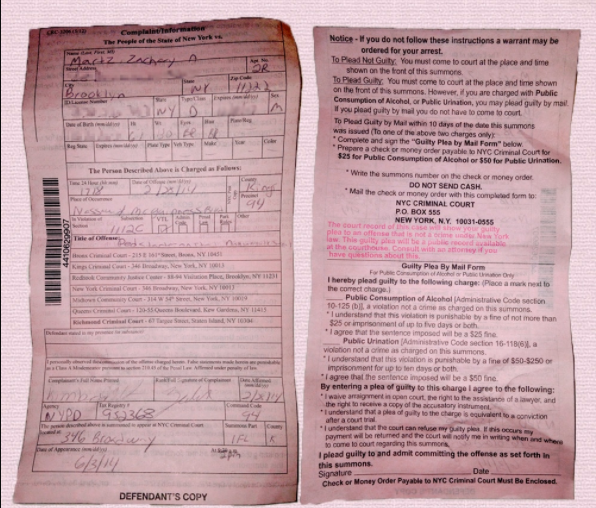 Complaint/Information
The People of the State of New York vs.
Name (Last, First, MI)
Martz Zachery A
Street Address
Apt. No.
2R
Brooklyn
State
NY
Zip Code
11223
ID/License Number
State
NY
Type/Class
D
Expires (mm/dd/yy)
Sex
M
Date of Birth (mm/dd/yy)
Ht.
Wt.
Eyes
Hair
Plate/Reg.
Reg State
Expires (mm/dd/yy)
Plate Type
Veh Type
Make
Year
Color
The Person Described Above is Charged as Follows:
Time 24 Hour (hh:mm)
Date of Offense (mm/dd/yy)
County
Kings
Place of Occurrence
Precinct
94
In Violation of
Section
Subsection
VTL
Admin
Code
Penal
Law
Park
Rules
Other
Title of Offense:
4410629907
Bronx Criminal Court - 215 E 161st Street, Bronx, NY 10451
Kings Criminal Court - 346 Broadway, New York, NY 10013
Redhook Community Justice Center - 88-94 Visitation Place, Brooklyn, NY 11231
New York Criminal Court - 346 Broadway, New York, NY 10013
Midtown Community Court - 314 W 54th Street, New York, NY 10019
Queens Criminal Court - 120-55 Queens Boulevard, Kew Gardens, NY 11415
Richmond Criminal Court - 67 Targee Street, Staten Island, NY 10304
I personally observed the commission of the offense charged herein. False statements made herein are punishable
as a Class A Misdemeanor pursuant to section 210.45 of the Penal Law. Affirmed under penalty of law.
Complainant's Full Name Printed
Rank/Full Signature of Complainant
Date Affirmed
Agency
NYPD
Tax Registry #
952368
Command
94
The person described above is summoned to appear at NYC Criminal Court
located at
346 Broadway
Summons Part
County
K
Date of Appearance (mm/dd/yy)
6/3/14
DEFENDANT'S COPY
Notice - If you do not follow these instructions a warrant may be
ordered for your arrest.
To Plead Not Guilty: You must come to court at the place and time
shown on the front of this summons.
To Plead Guilty: You must come to court at the place and time shown
on the front of this summons. However, if you are charged with Public
Consumption of Alcohol, or Public Urination, you may plead guilty by mail.
If you plead guilty by mail you do not have to come to court.
To Plead Guilty by Mail within 10 days of the date this summons
was issued (To one of the above two charges only):
* Complete and sign the "Guilty Plea by Mail Form" below.
* Prepare a check or money order payable to NYC Criminal Court for
$25 for Public Consumption of Alcohol or $50 for Public Urination.
* Write the summons number on the check or money order.
DO NOT SEND CASH.
* Mail the check or money order with this completed form to:
NYC CRIMINAL COURT
P.O. BOX 555
NEW YORK, N.Y. 10031-0555
The court record of this case will show your guilty
plea to an offense that is not a crime under New York
law. This guilty plea will be a public record available
at the courthouse. Consult with an attorney if you
have questions about this.
Guilty Plea By Mail Form
For Public Consumption of Alcohol or Public Urination Only
I hereby plead guilty to the following charge: (Place a mark next to
the correct charge.)
Public Consumption of Alcohol [Administrative Code section
10-125 (b)], a violation not a crime as charged on this summons.
* I understand that this violation is punishable by a fine of not more than
$25 or imprisonment of up to five days or both.
* I agree that the sentence imposed will be a $25 fine.
Public Urination [Administrative Code section 16-118(6)], a
violation not a crime as charged on this summons.
* I understand that this violation is punishable by a fine of $50-$250 or
imprisonment for up to ten days or both.
* I agree that the sentence imposed will be a $50 fine.
By entering a plea of guilty to this charge I agree to the following:
* I waive arraignment in open court, the right to the assistance of a lawyer, and
the right to receive a copy of the accusatory instrument.
* I understand that a plea of guilty to the charge is equivalent to a conviction
after a court trial.
* I understand that the court can refuse my guilty plea. If this occurs my
payment will be returned and the court will notify me in writing when and where
to come to court regarding this summons.
I plead guilty to and admit committing the offense as set forth in
this summons.
Signature
Date
Check or Money Order Payable to NYC Criminal Court Must Be Enclosed.